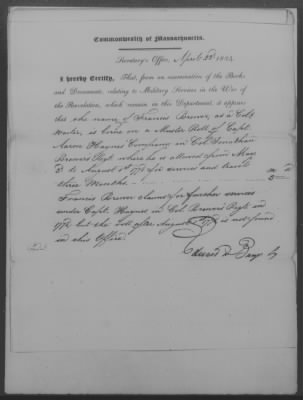 Commonwealth of Massachusetts.
Secretary's Office, April 22d 1834
I hereby Certify, That, from an examination of the Books
and Documents, relating to Military Services in the War of
the Revolution, which remain in this Department, it appears
that the name of Francis Brewer, as a
is borne on a Muster Roll of Capt.
Aaron Haynes Company in Col Jonathan
Brewers Regt. where he is allowed from
to August 1st for service and travel
three Months.
Francis Brewer claims for further services
under Capt. Haynes in Col Brewers Regt. in
but the Roll after August is not found
in this Office.
Edward D. Bangs